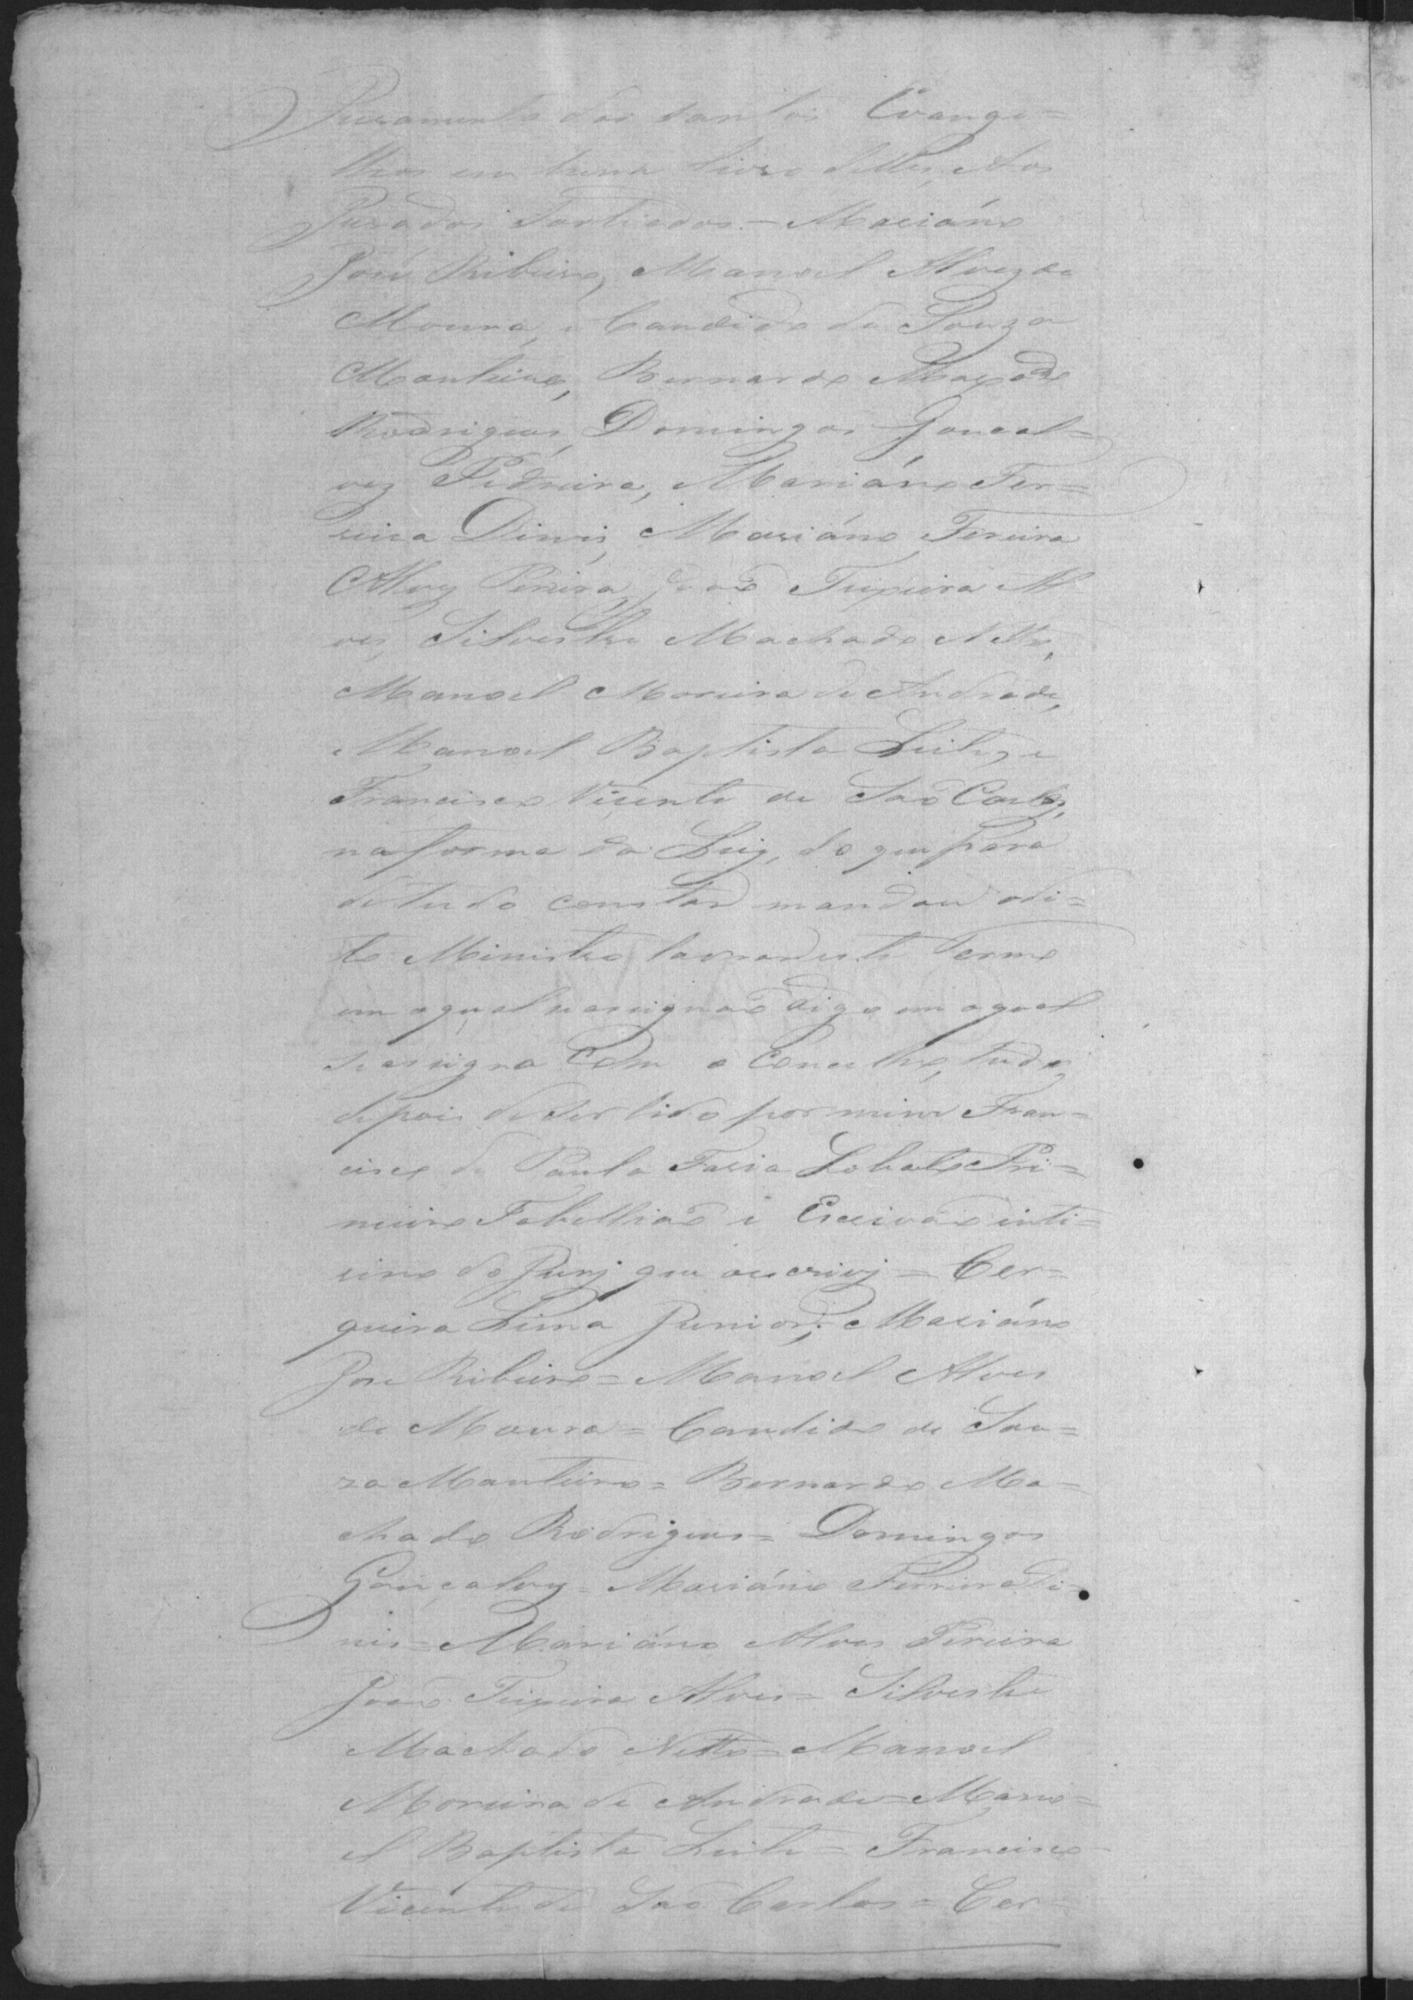 Juramento dos Santos Evange=
lhos em huma livro delles, Aos
Jurados Sortiados = Mariáno
José Ribeiro, Manoel Alvez de
Moura, e Candido de Souza
Monteiro, Bernardo Maxado
Rodrigues, Domingos Goncal=
vez Pedreira, Mariáno Fer=
reira Dinis, Mariáno Fereira
Alvez Pereira, João Teixeira Al
ves, Silvestre Machado Netto,
Manoel Moreira de Andrade,
Manoel Baptista Leite, e
Francisco Vicente de São Carlos,
na forma da Leiy, do que para
de tudo constar mandou o di=
to Ministro lavrar este Termo
em o qual se assignão digo em o qual
se assigna Com o Concelho, tudo
depois de ser lido por mim Fran=
cisco de Paula Faria Lobato Pri=
meiro Tabellião i Escrivão inti=
rino do Jury que oescrivy = Cer=
queira Lima Junior = Mariáno
José Ribeiro = Manoel Alves
de Moura = Candido de Sou=
za Monteiro = Bernardo Ma=
chado Rodrigues = Domingos
Gonçalvez = Mariáno Ferreira Di=
nis = Mariáno Alves Pereira
João Teixeira Alves = Silvestre
Machado Netto = Manoel
Moreira de Andrade = Mano=
el Baptista Leite = Francisco
Vicente de São Carlos = Cer=